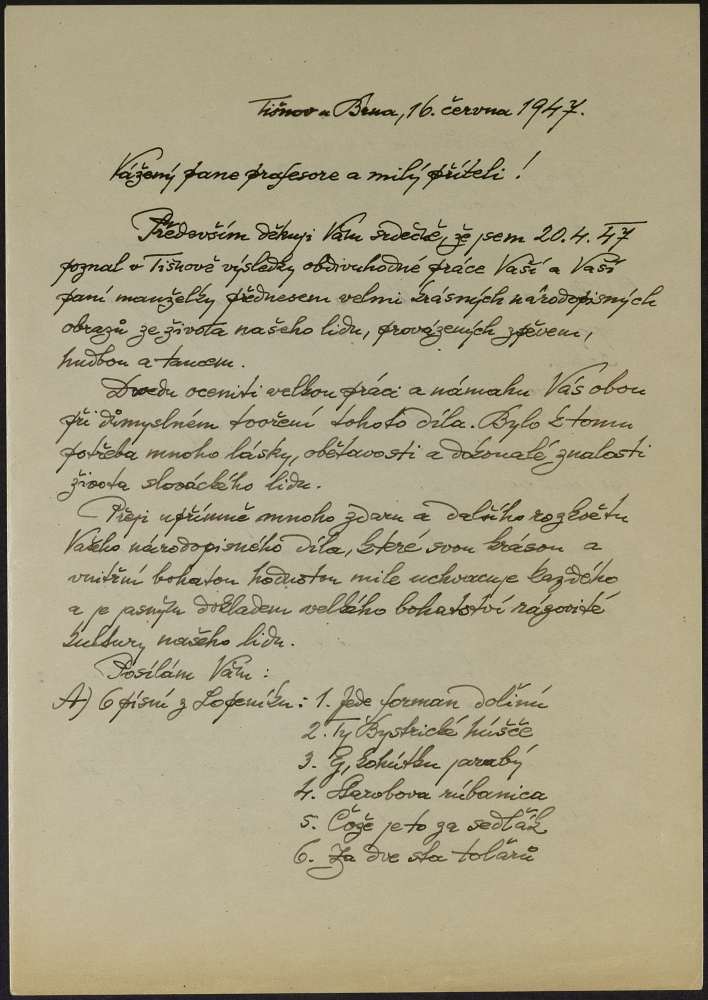 Tišnov u Brna, 16. června 1947.
Vážený pane profesore a milý příteli!
Především děkuji Vám srdečně, že jsem 20.4.47
poznal v Tišnově výsledky obdivuhodné práce Vaší a Vaší
paní manželky přednesem velmi krásných národopisných
obrazů ze života našeho lidu, provázených zpěvem,
hudbou a tancem.
Dovedu oceniti velkou práci a námahu Vás obou
při důmyslném tvoření tohoto díla. Bylo k tomu
potřeba mnoho lásky, obětavosti a dokonalé znalosti
života slováckého lidu.
Přeji upřímně mnoho zdaru a dalšího rozkvětu
Vašeho národopisného díla, které svou krásou a
vnitřní bohatou hodnotou mile uchvacuje každého
a je jasným dokladem velkého bohatství rázovité
kultury našeho lidu.
Posílám Vám:
A) 6 písní z Lopeníku: 1. Jede forman dolinú
2. Ty Bystrické húšče
3. Ej, kohútku jarabý
4. rúbanica
5. Čože je to za sedlák
6. Za dve sta tolárů